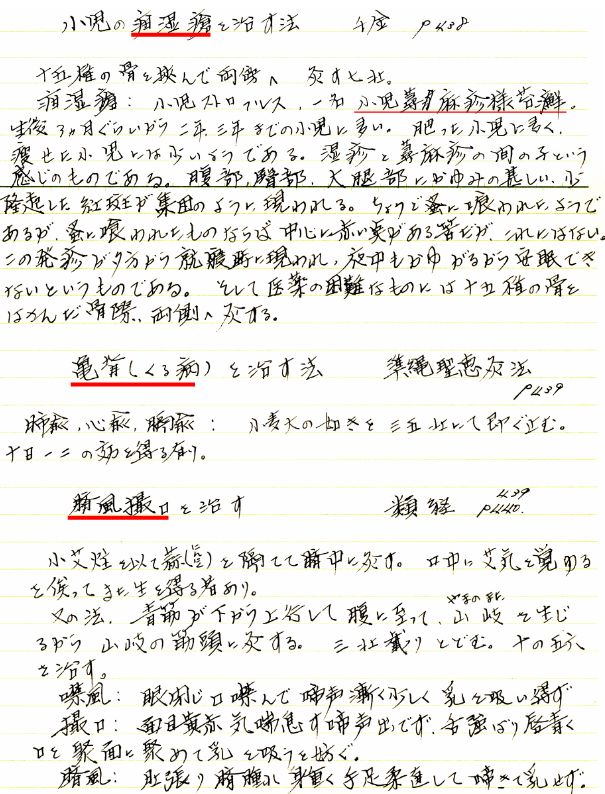 小児の疳湿瘡を治す法 千金 P438
十五椎の骨を挟んで両傍へ 灸す七壮。
疳湿瘡：小児ストロフルス、一名 小児蕁麻疹様苔癬。
生後3ヵ月ぐらいから二年、三年までの小児に多い。肥った小児に多く、
痩せた小児には少いようである。湿疹と蕁麻疹の間の子という
感じのものである。腹部、臀部、大腿部にかゆみの甚しい、少し
隆起した紅斑が集団のように現われる。ちょうど蚤に喰われたようで
あるが、蚤に喰われたものならば中心に赤い点がある筈だが、これにはない。
この発疹が夕方から就寝時に現われ、夜中もかゆがるから安眠でき
ないというものである。そして医薬の困難なものには十五椎の骨を
はさんだ骨際、両側へ灸する。
亀背(くる病)を治す法 準縄聖恵灸法
P439
肺兪、心兪、膈兪： 小麦大の如きを三五壮にて即ぐ止む。
十日一二の効を得る有り。
臍風撮口を治す 類経 P439 P440.
小艾炷を以て蒜(にんにく)を隔てて臍中に灸す。口中に艾気を覚める
を俟ってまた生を得る者あり。
又の法、青筋が下から上行して腹に至って、山岐(やまのまた)を生じ
るから山岐の筋頭に灸する。三壮截りとどむ。十の五六
を治す。
噤風：眼閉じ口噤んで啼声漸く少しく 乳を吸い得ず
撮口：面目黄赤 気喘息す啼声出でず、舌強ばり唇青く
口を聚面に聚めて乳を吸うを妨ぐ。
臍風：肚張り臍腫れ 身重く手足柔直して啼きて乳せず。